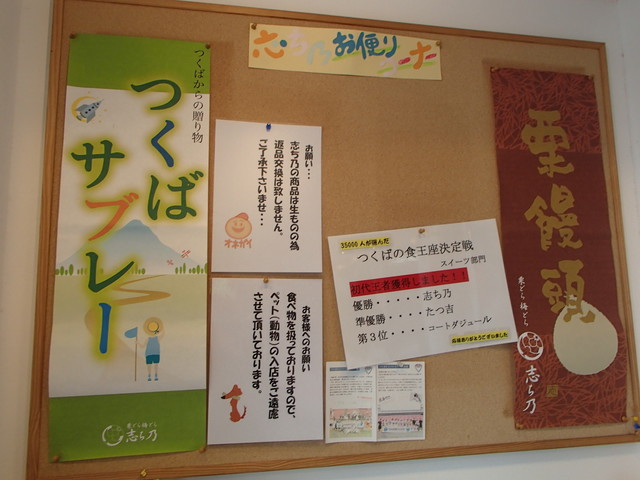 志ち乃お便り
コーナー
つくばからの贈り物
つくば
サブレー
栗どら梅どら
志ち乃
お願い・・・
志ち乃の商品は生ものの為
返品交換は致しません。
ご了承下さいませ・・・
オネガイ
お客様へのお願い
食べ物を扱っておりますので、
ペット(動物)の入店をご遠慮
させて頂いております。
35000人が選んだ
つくばの食王座決定戦
スイーツ部門
初代王者獲得しました!!
優勝・・・・・・志ち乃
準優勝・・・・・たつ吉
第3位・・・・コートダジュール
応援ありがとうございました
栗饅頭
栗どら梅どら
志ち乃